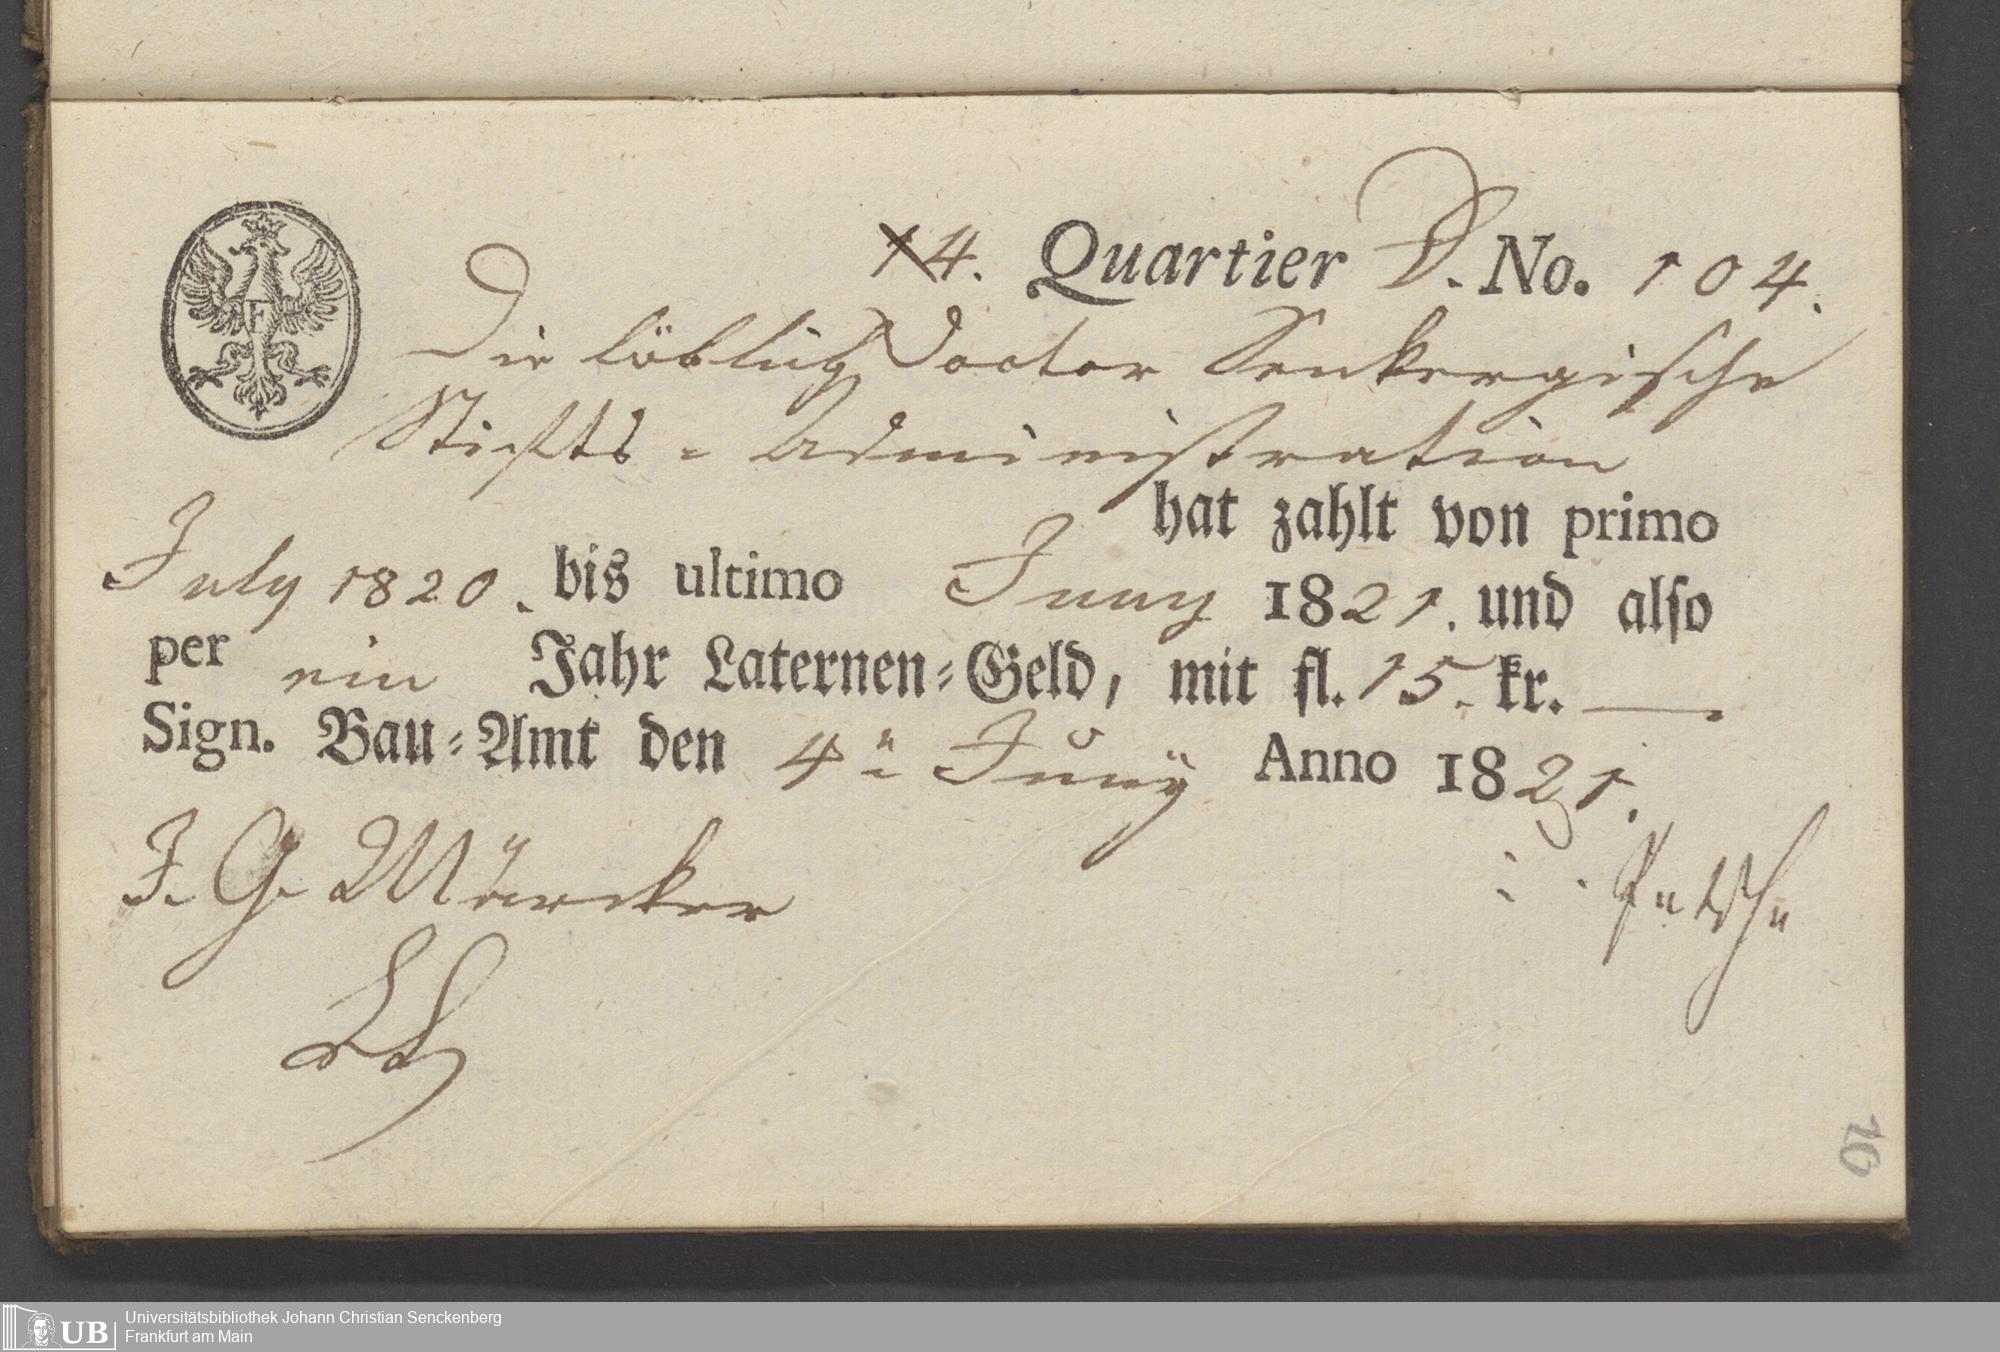 14. Quartier D. No. 104.
Die löblich Doctor Senkergische
Stiffts = Administration
hat zahlt von primo
July 1820. bis ultimo Juny 1821. und also
per ein Jahr Laternen-Geld, mit fl. 15. kr. —
Sign. Bau-Amt den 4n Juny Anno 1821.
J. G. Märcker
UB Universitätsbibliothek Johann Christian Senckenberg
Frankfurt am Main